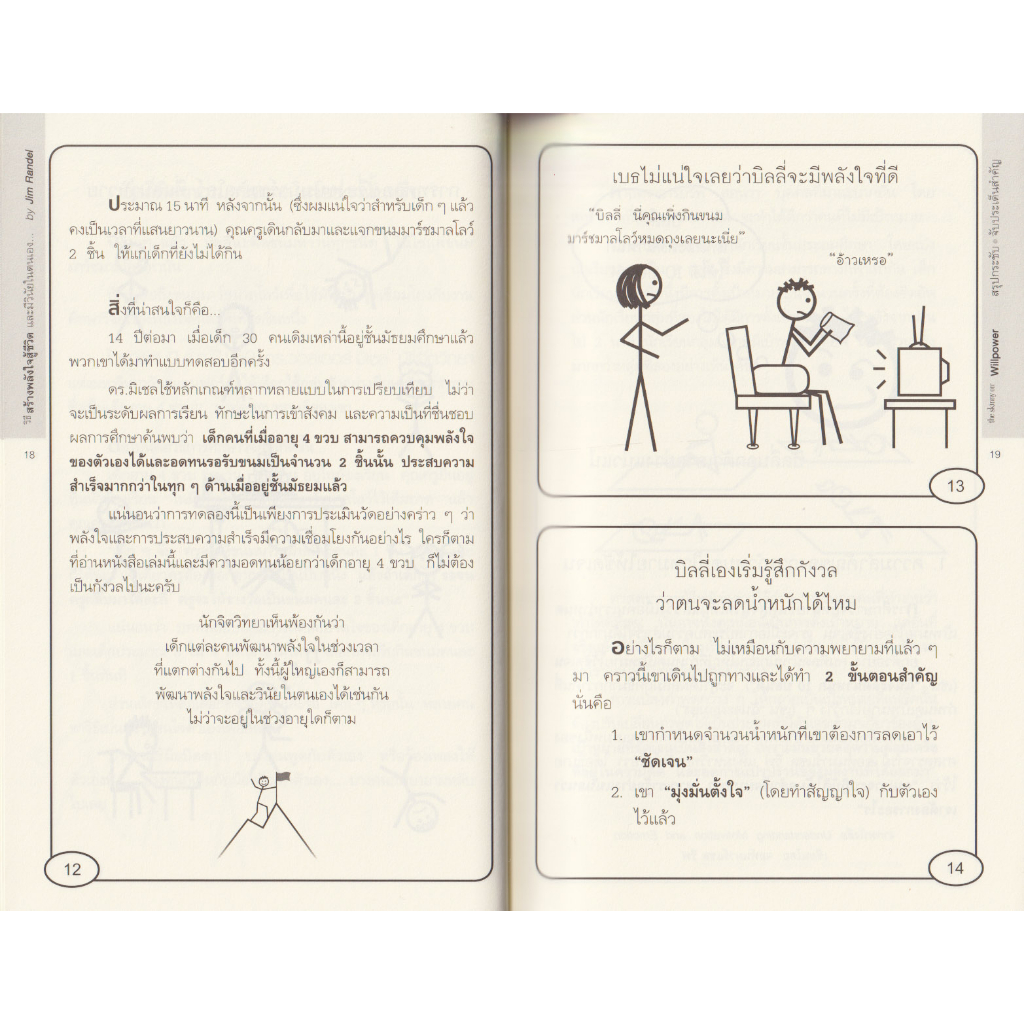 วิธี สร้างพลังใจสู้ชีวิต และมีวินัยในตนเอง... by Jim Randel
18
ประมาณ 15 นาที หลังจากนั้น (ซึ่งผมแน่ใจว่าสำหรับเด็ก ๆ แล้ว
คงเป็นเวลาที่แสนยาวนาน) คุณครูเดินกลับมาและแจกขนมมาร์ชมาลโลว์
2 ชิ้น ให้แก่เด็กที่ยังไม่ได้กิน
สิ่งที่น่าสนใจก็คือ...
14 ปีต่อมา เมื่อเด็ก 30 คนเดิมเหล่านี้อยู่ชั้นมัธยมศึกษาแล้ว
พวกเขาได้มาทำแบบทดสอบอีกครั้ง
ดร.มิเชลใช้หลักเกณฑ์หลากหลายแบบในการเปรียบเทียบ ไม่ว่า
จะเป็นระดับผลการเรียน ทักษะในการเข้าสังคม และความเป็นที่ชื่นชอบ
ผลการศึกษาค้นพบว่า เด็กคนที่เมื่ออายุ 4 ขวบ สามารถควบคุมพลังใจ
ของตัวเองได้และอดทนรอรับขนมเป็นจำนวน 2 ชิ้นนั้น ประสบความ
สำเร็จมากกว่าในทุก ๆ ด้านเมื่ออยู่ชั้นมัธยมแล้ว
แน่นอนว่าการทดลองนี้เป็นเพียงการประเมินวัดอย่างคร่าว ๆ ว่า
พลังใจและการประสบความสำเร็จมีความเชื่อมโยงกันอย่างไร ใครก็ตาม
ที่อ่านหนังสือเล่มนี้และมีความอดทนน้อยกว่าเด็กอายุ 4 ขวบ ก็ไม่ต้อง
เป็นกังวลไปนะครับ
นักจิตวิทยาเห็นพ้องกันว่า
เด็กแต่ละคนพัฒนาพลังใจในช่วงเวลา
ที่แตกต่างกันไป ทั้งนี้ผู้ใหญ่เองก็สามารถ
พัฒนาพลังใจและวินัยในตนเองได้เช่นกัน
ไม่ว่าจะอยู่ในช่วงอายุใดก็ตาม
12
เบธไม่แน่ใจเลยว่าบิลลี่จะมีพลังใจที่ดี
"บิลลี่ นี่คุณเพิ่งกินขนม
มาร์ชมาลโลว์หมดถุงเลยนะเนี่ย"
"อ้าวเหรอ"
13
บิลลี่เองเริ่มรู้สึกกังวล
ว่าตนจะลดน้ำหนักได้ไหม
อย่างไรก็ตาม ไม่เหมือนกับความพยายามที่แล้ว ๆ
มา คราวนี้เขาเดินไปถูกทางและได้ทำ 2 ขั้นตอนสำคัญ
นั่นคือ
1. เขากำหนดจำนวนน้ำหนักที่เขาต้องการลดเอาไว้
"ชัดเจน"
2. เขา "มุ่งมั่นตั้งใจ" (โดยทำสัญญาใจ) กับตัวเอง
ไว้แล้ว
14
the skinny on Willpower สรุปกระชับ • จับประเด็นสำคัญ
19